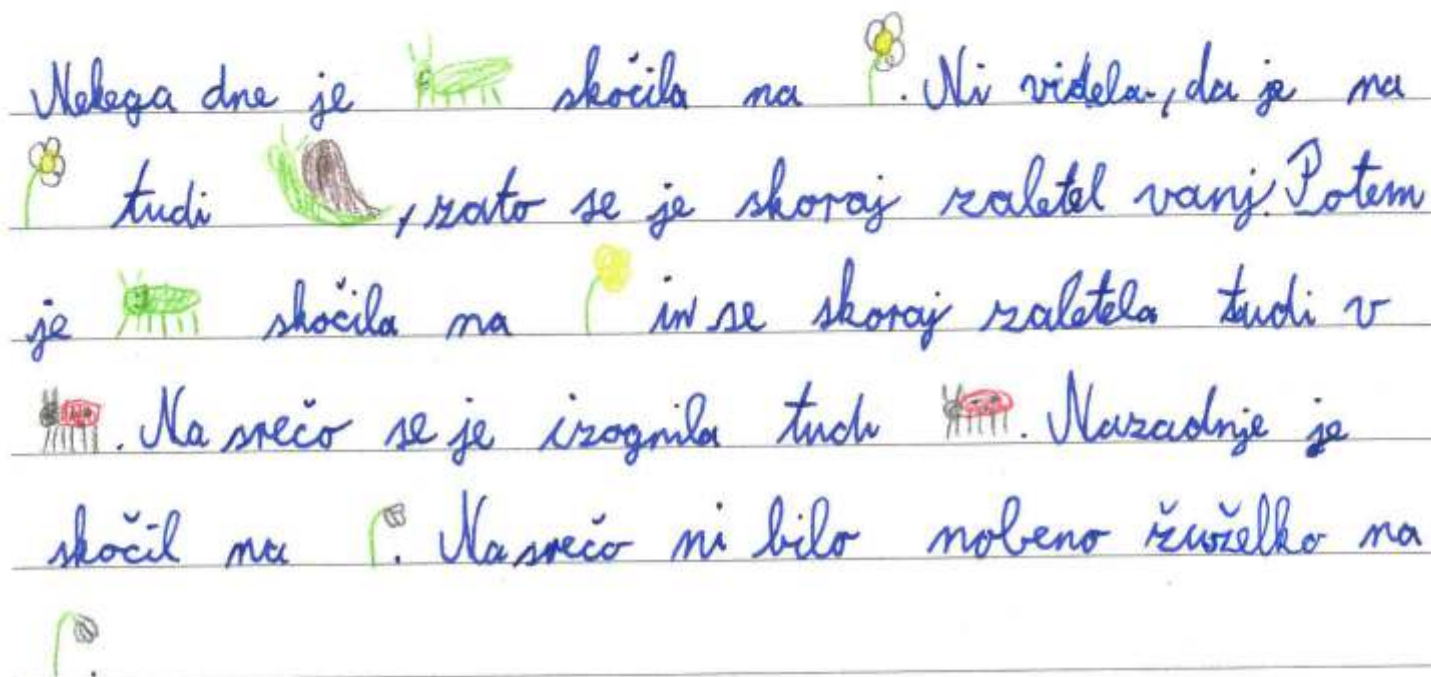 Nekega dne je skočila na . Ni videla, da je na
tudi , zato se je skoraj zaletel vanj. Potem
je skočila na in se skoraj zaletela tudi v
. Na srečo se je izognila tudi . Nazadnje je
skočil na . Na srečo ni bilo nobeno žuželko na
.